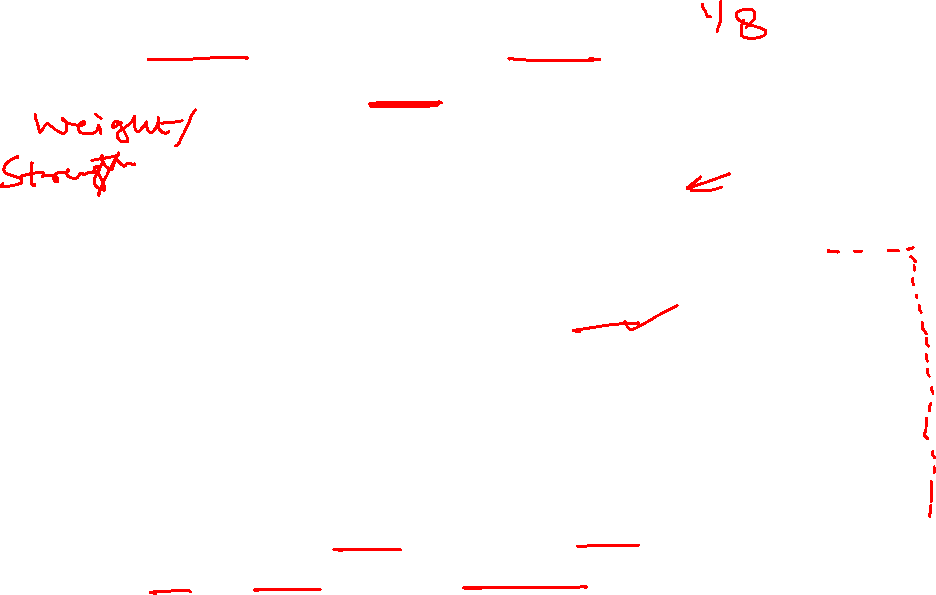 1/8
Weight/
Strength